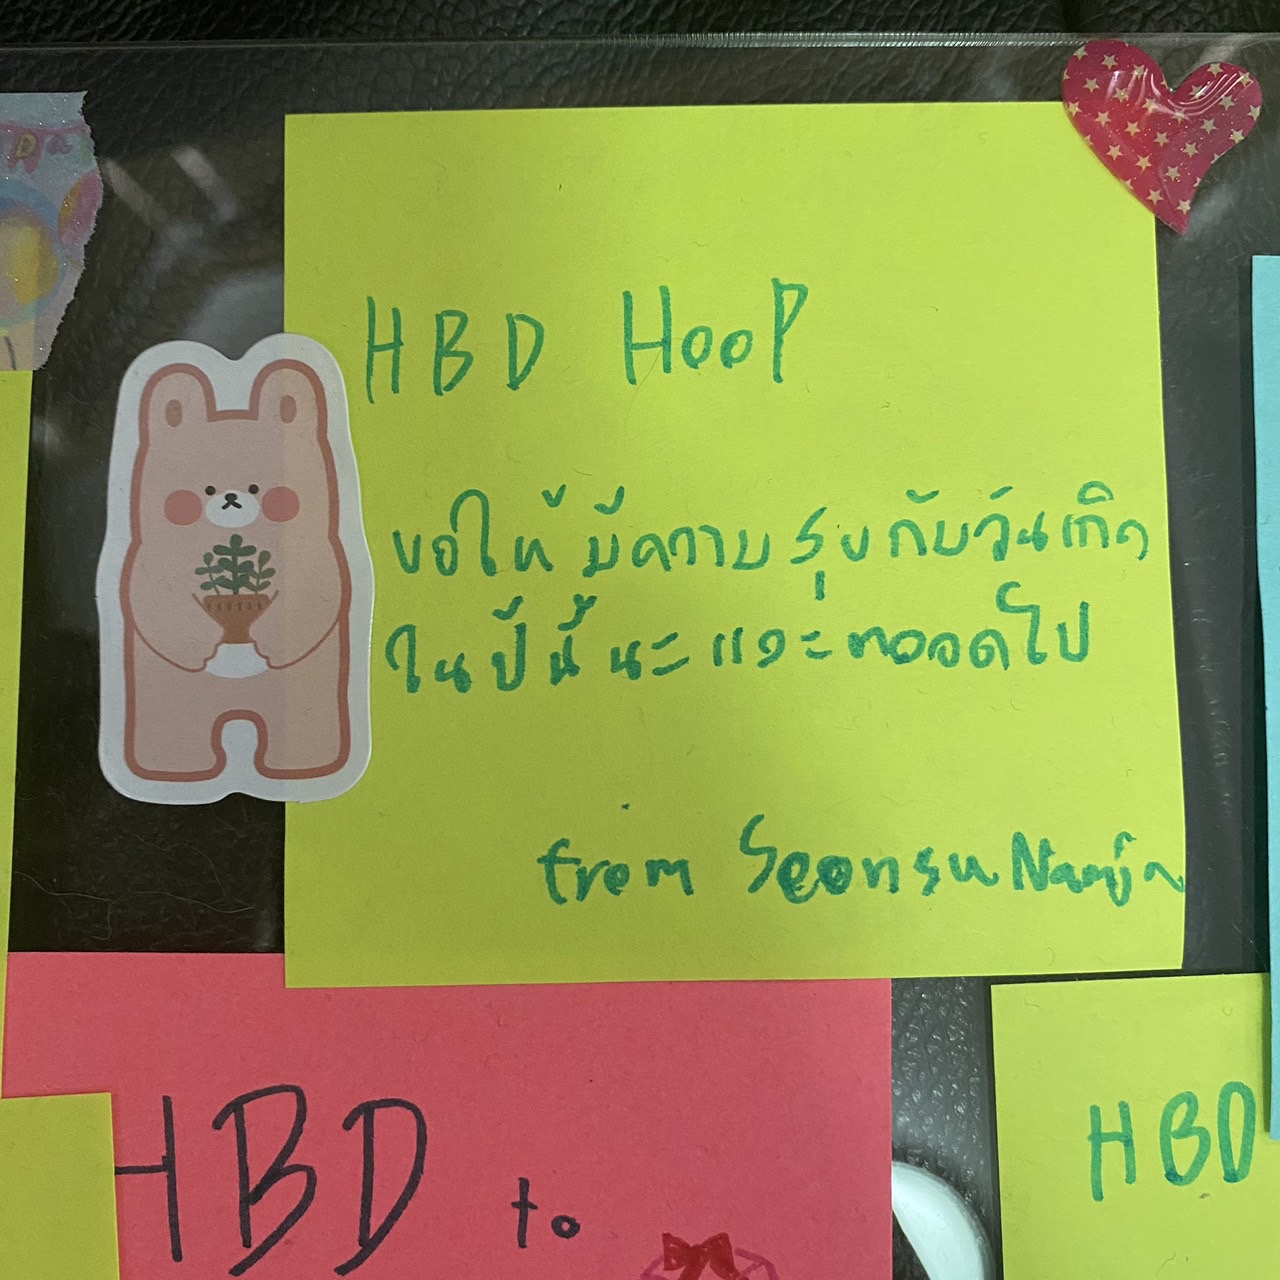 HBD HooP
ขอให้มีความสุขกับวันเกิด
ในปีนี้นะและตลอดไป
from Seonsu
HBD to
HBD